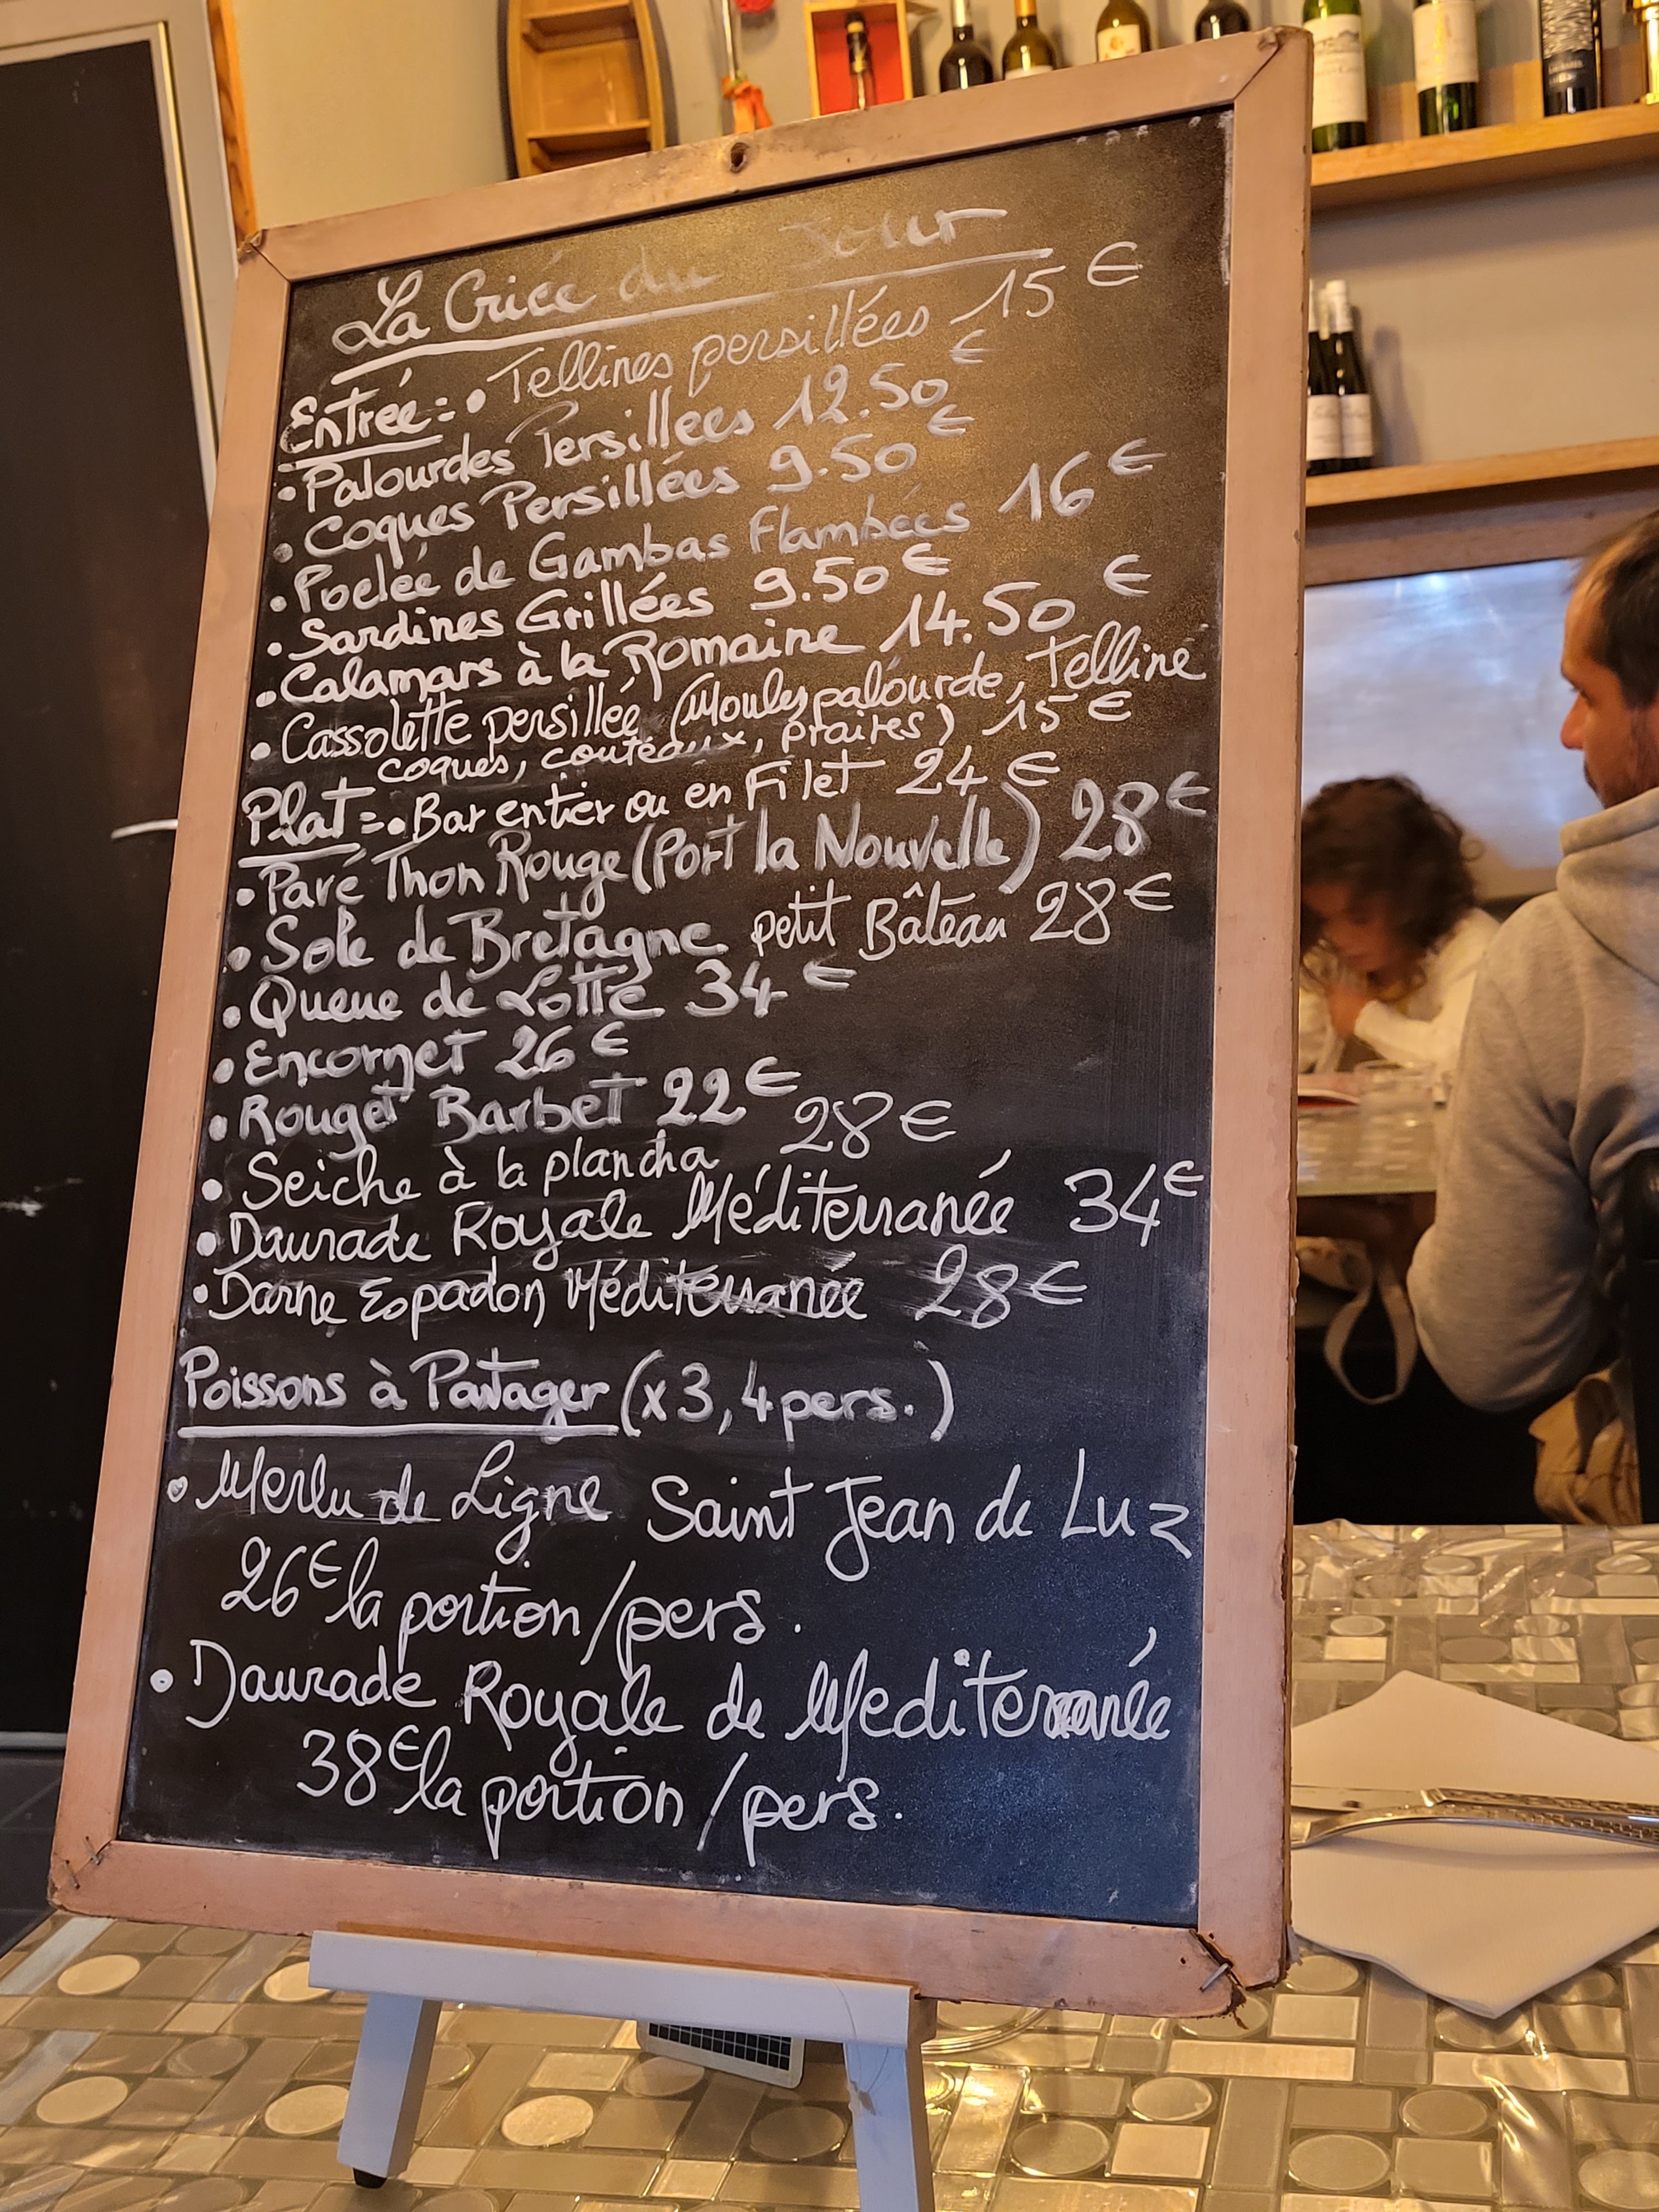 La Criée du Jour
Entrée = • Tellines persillées 15 €
• Palourdes Persillées 12.50 €
• Coques Persillées 9.50 €
• Poelée de Gambas Flambées 16 €
• Sardines Grillées 9.50 €
• Calamars à la Romaine 14.50 €
• Cassolette persillée (Moules, palourde, Telline
coques, couteaux, praires) 15 €
Plat = • Bar entier ou en Filet 24 €
• Pavé Thon Rouge (Port la Nouvelle) 28 €
• Sole de Bretagne petit Bâteau 28 €
• Queue de Lotte 34 €
• Encornet 26 €
• Rouget Barbet 22 €
• Seiche à la plancha 28 €
• Daurade Royale Méditerranée 34 €
• Darne Espadon Méditerranée 28 €
Poissons à Partager (x 3, 4 pers.)
• Merlu de Ligne Saint Jean de Luz
26€ la portion/pers.
• Daurade Royale de Mediterranée
38€ la portion/pers.